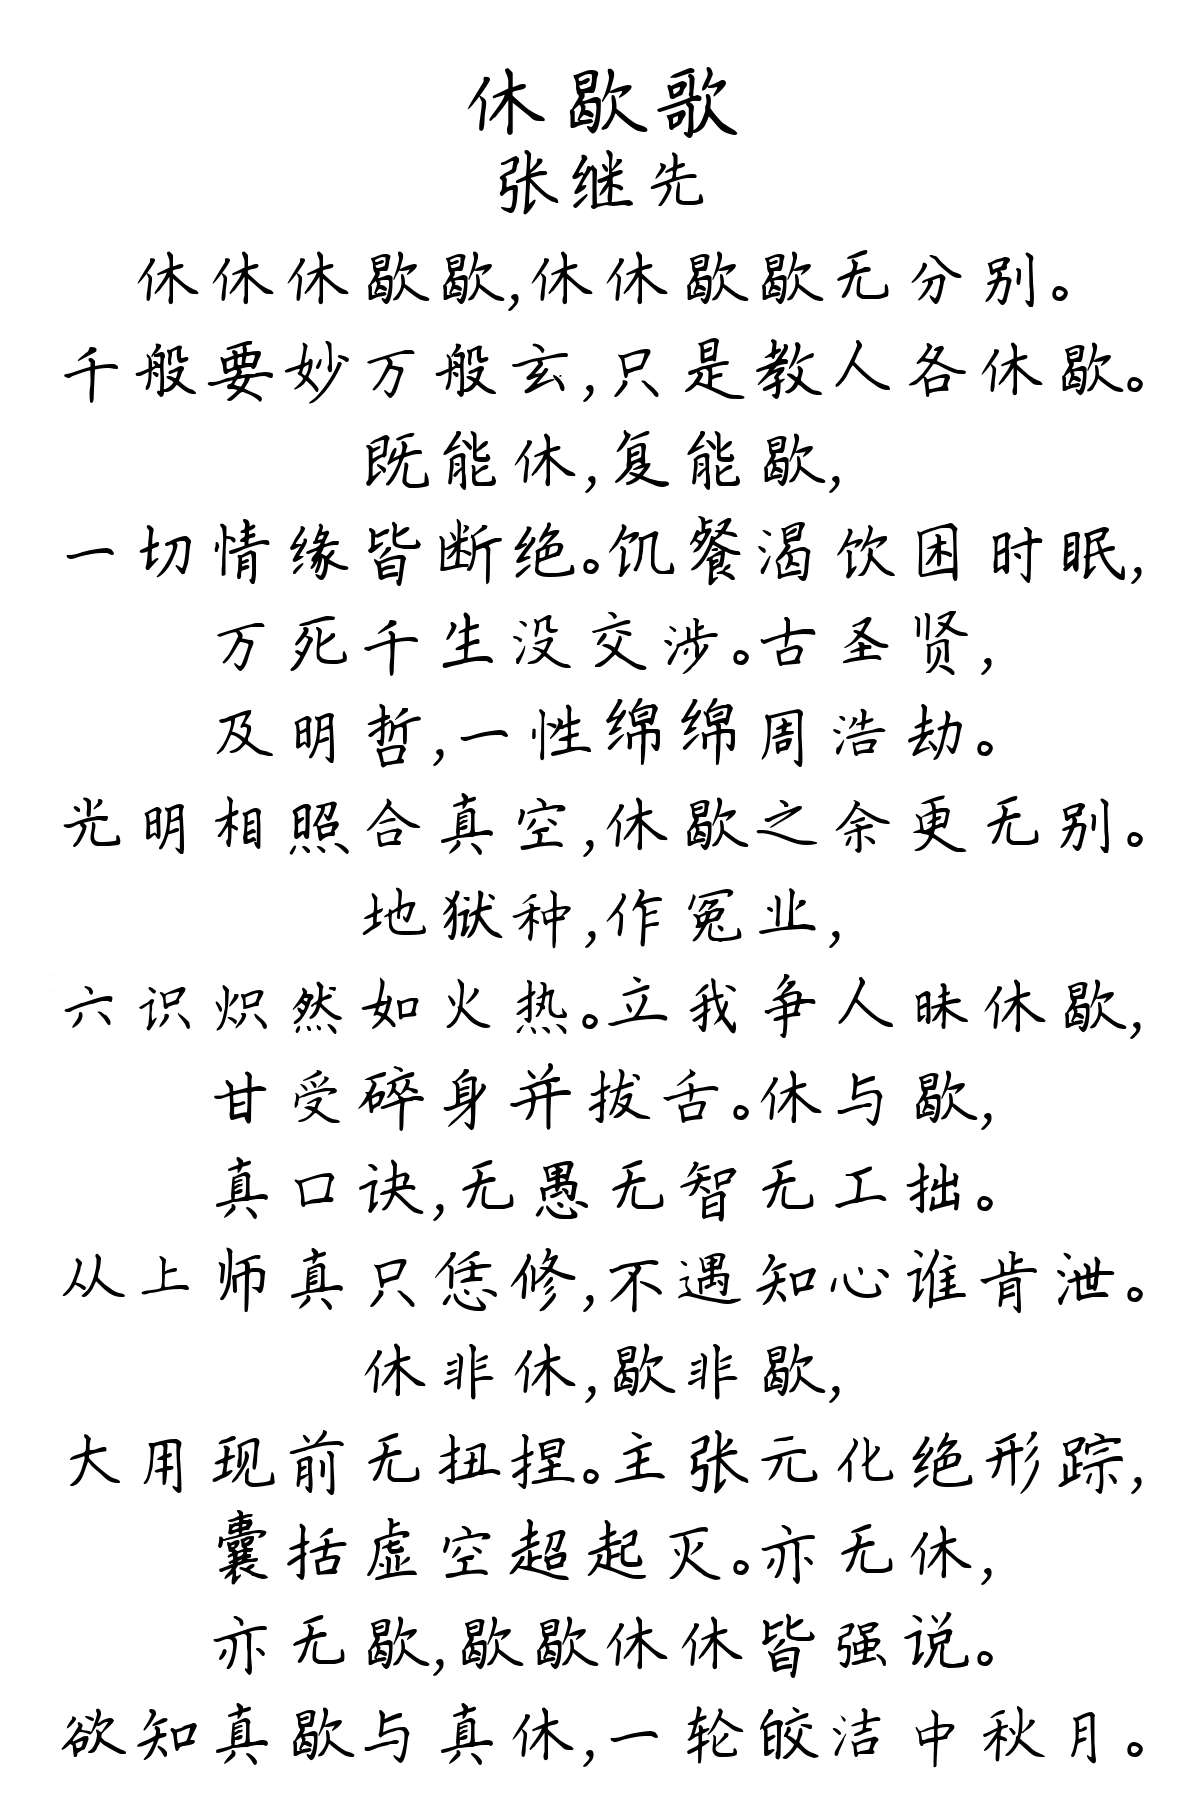 休歇歌
张继先
休休休歇歇,休休歇歇无分别。
千般要妙万般玄,只是教人各休歇。
既能休,复能歇,
一切情缘皆断绝。饥餐渴饮困时眠,
万死千生没交涉。古圣贤,
及明哲,一性绵绵周浩劫。
光明相照合真空,休歇之余更无别。
地狱种,作冤业,
六识炽然如火热。立我争人昧休歇,
甘受碎身并拔舌。休与歇,
真口诀,无愚无智无工拙。
从上师真只恁修,不遇知心谁肯泄。
休非休,歇非歇,
大用现前无扭捏。主张元化绝形踪,
囊括虚空超起灭。亦无休,
亦无歇,歇歇休休皆强说。
欲知真歇与真休,一轮皎洁中秋月。